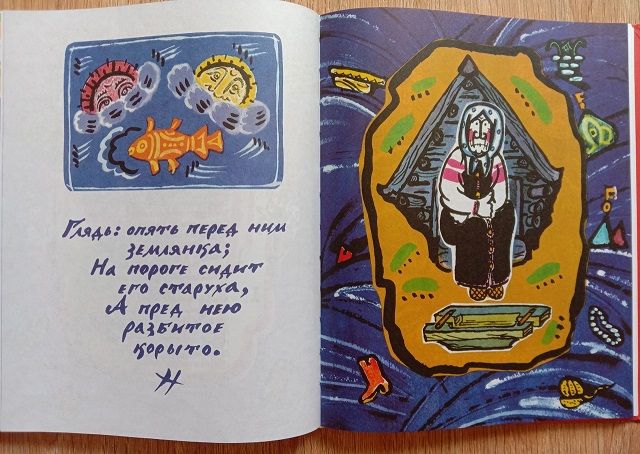 Глядь: опять перед ним
землянка;
На пороге сидит
его старуха,
А пред нею
разбитое
корыто.